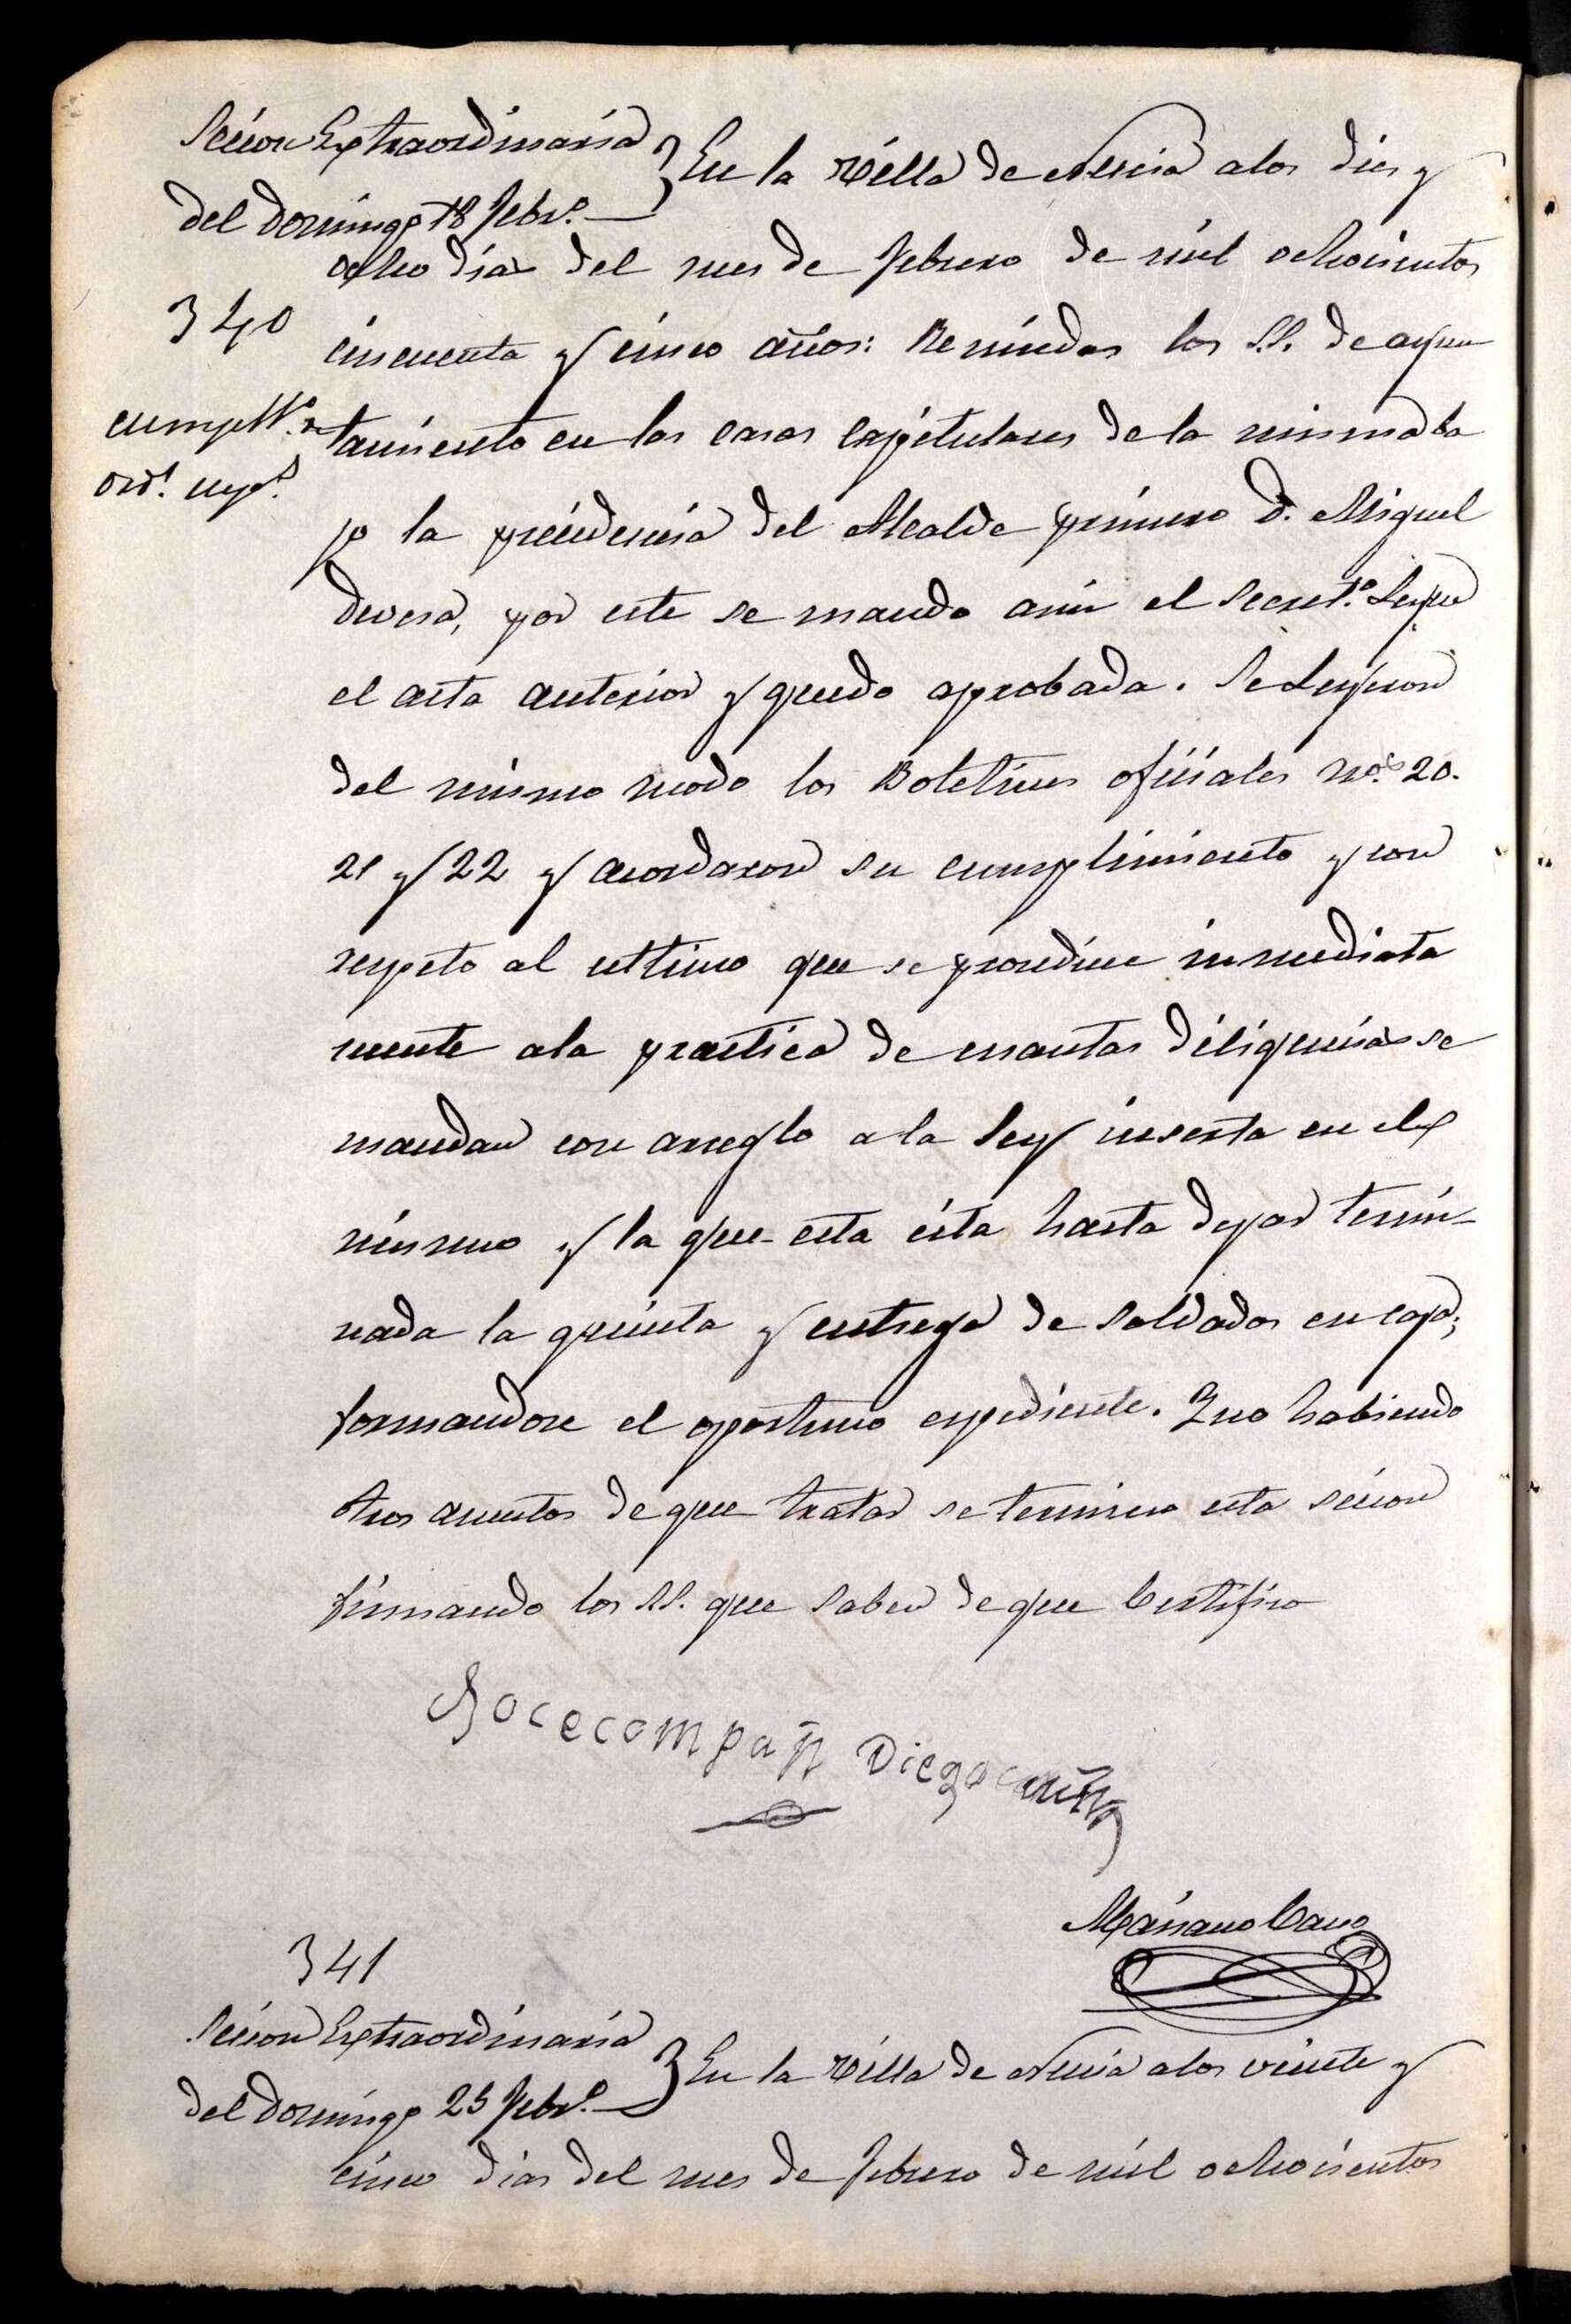 Secion Extraordinaria
del Domingo 18 Febr.o
340
cumplto. de
ord.s sup.s
En la Villa de Nucia a los dies y
ocho dias del mes de Febrero de mil ochocientos
cincuenta y cinco años: Reunidos los S.S. de ayun
tamiento en las casas capitulares de la misma ba
jo la precidencia del Alcalde primero D. Miguel
Devesa, por este se mando a mi el Secret.o Leyese
el acta anterior y quedo aprobada. Se Leyeron
del mismo modo los Boletines oficiales no.s 20.
21 y 22 y acordaron su cumplimiento y con
respeto al ultimo que se procediese inmediata
mente a la practica de cuantas diligencias se
mandan con arreglo a la Ley inserta en el
mismo y la que esta cita hasta dejar termi-
nada la quinta y entrega de Soldados en caja;
formandose el oportuno espediente. Y no habiendo
otros asuntos de que tratar se termino esta secion
firmando los SS. que saben de que Certifico
Jocecompañ Diego
Mariano Cano
341
Secion Extraordinaria
del Domingo 25 Febr.o
En la Villa de Nucia a los veinte y
cinco dias del mes de Febrero de mil ochocientos